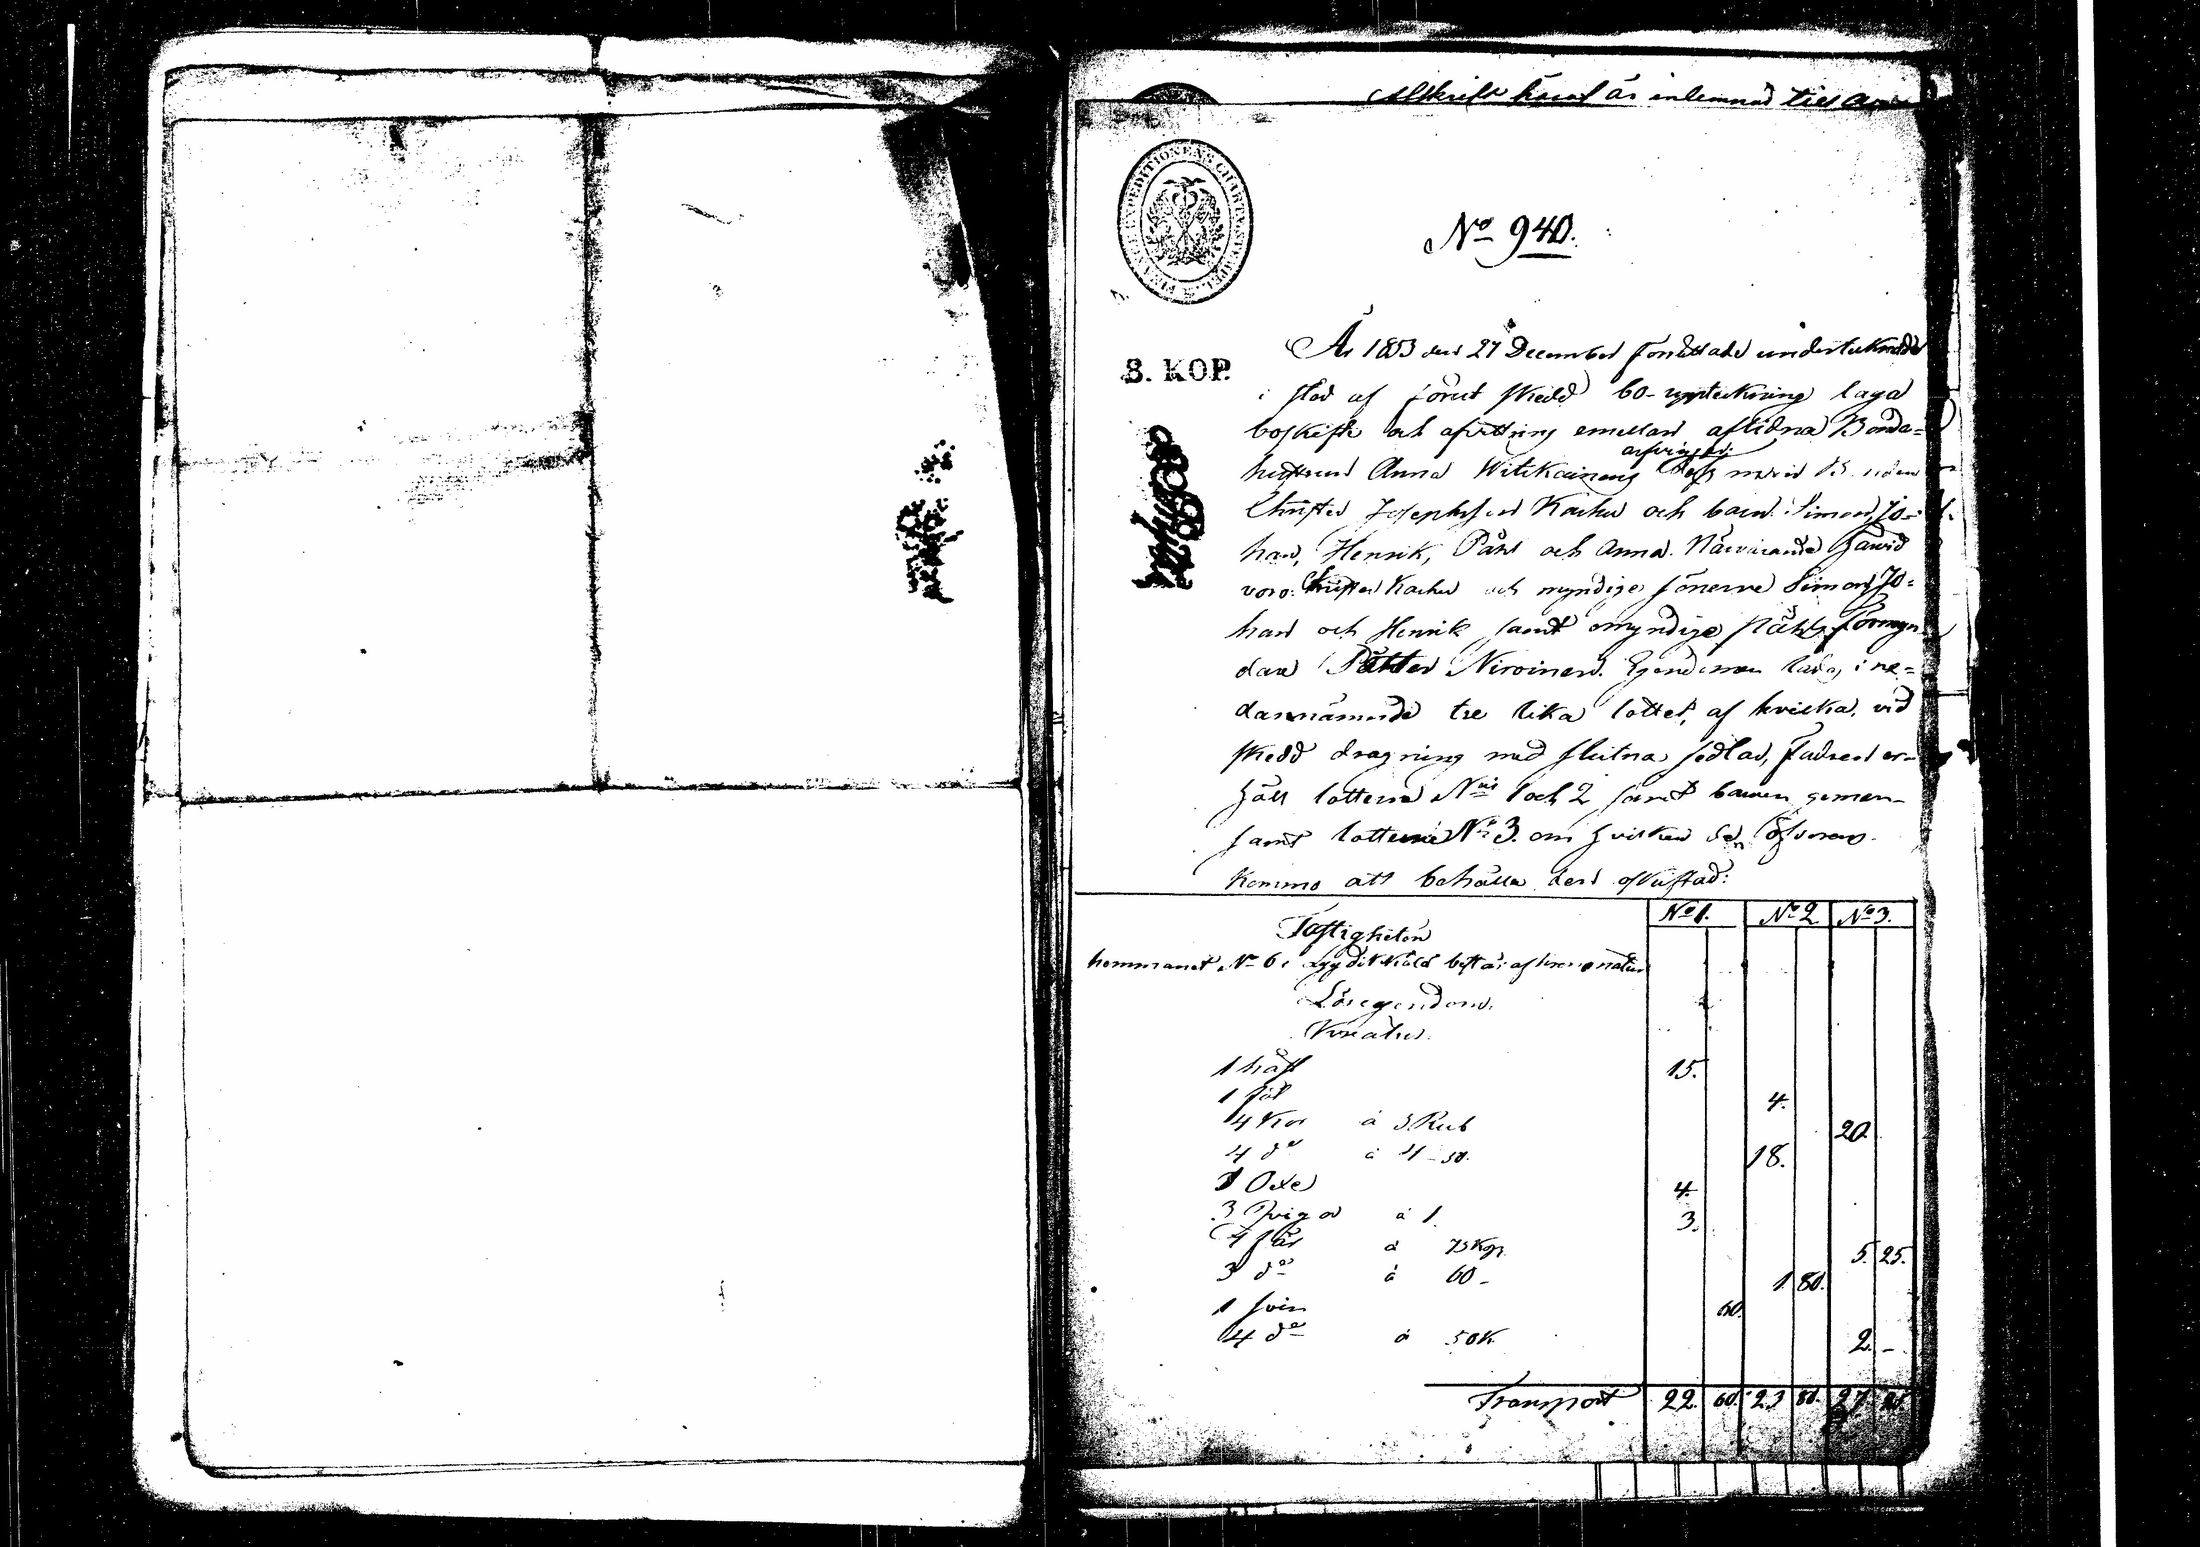 Afskrift häraf är inlemnad till
FINANCE EXPEDITIONENS CHARTÆ STÄMPEL
No 940.
8. KOP.
År 1853 den 27 December förrättade undertecknade
i stad af förut skedd bo-uppteckning laga
boskifte och afvittring emellan aflidna Bonda-
hustrun Anna Witikainens arfvingar
Christer Josephsson Karhu och barn: Simon, Jo-
han, Henrik, Påhl och Anna. Närvarande härvid
voro: Christer Karhu och myndige sönerne Simon, Jo-
han och Henrik samt omyndige Påhls förmyn
dare Petter Niroinen. Egendomen lades i ne-
dannämnde tre lika lotter, af hvilka, vid
skedd dragning med slutna sedlar, Fadren er-
höll lotterne Nris 1 och 2 samt barnen gemen-
samt lotten No 3. om hvilken de öfverens-
kommo att behålla den oskiftad:
No 1. No 2 No 3.
Fastigheten
hemmanet No 6 i
Lösegendom.
Kreatur.
1 häst 15.
1 föl 4.
4 Kor à 5 Rub 20.
4 do à 4-50. 18.
1 Oxe 4.
3 Qvigor à 1. 3.
7 får à 75 Kop. 5. 25.
3 do à 60 - 1 80.
1 svin 60.
4 do à 50 K 2. -
Transport 22. 60. 23 80. 27. 25.